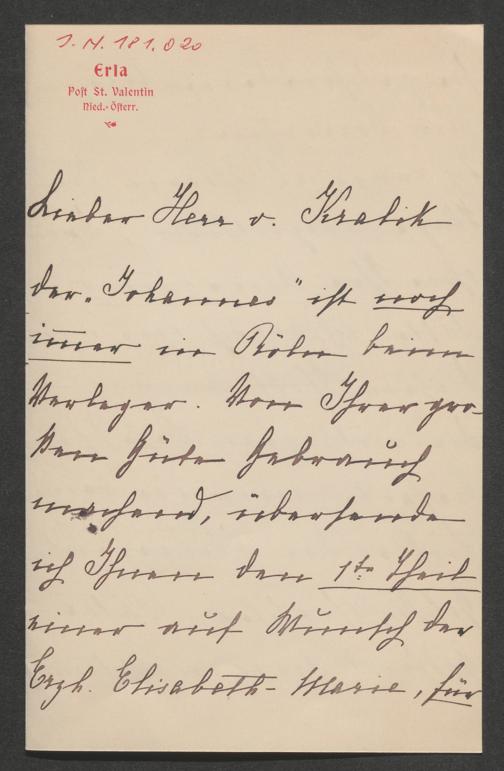 J. N. 181.020
Erla
Post St. Valentin
Nied.-Österr.
Lieber Herr v. Kralik
der „Johannes" ist noch
immer in Köln beim
Verleger. Von Ihrer gro-
ßen Güte Gebrauch
machend, übersende
ich Ihnen den 1te. Theil
einer auf Wunsch der
Erzh. Elisabeth-Marie, für